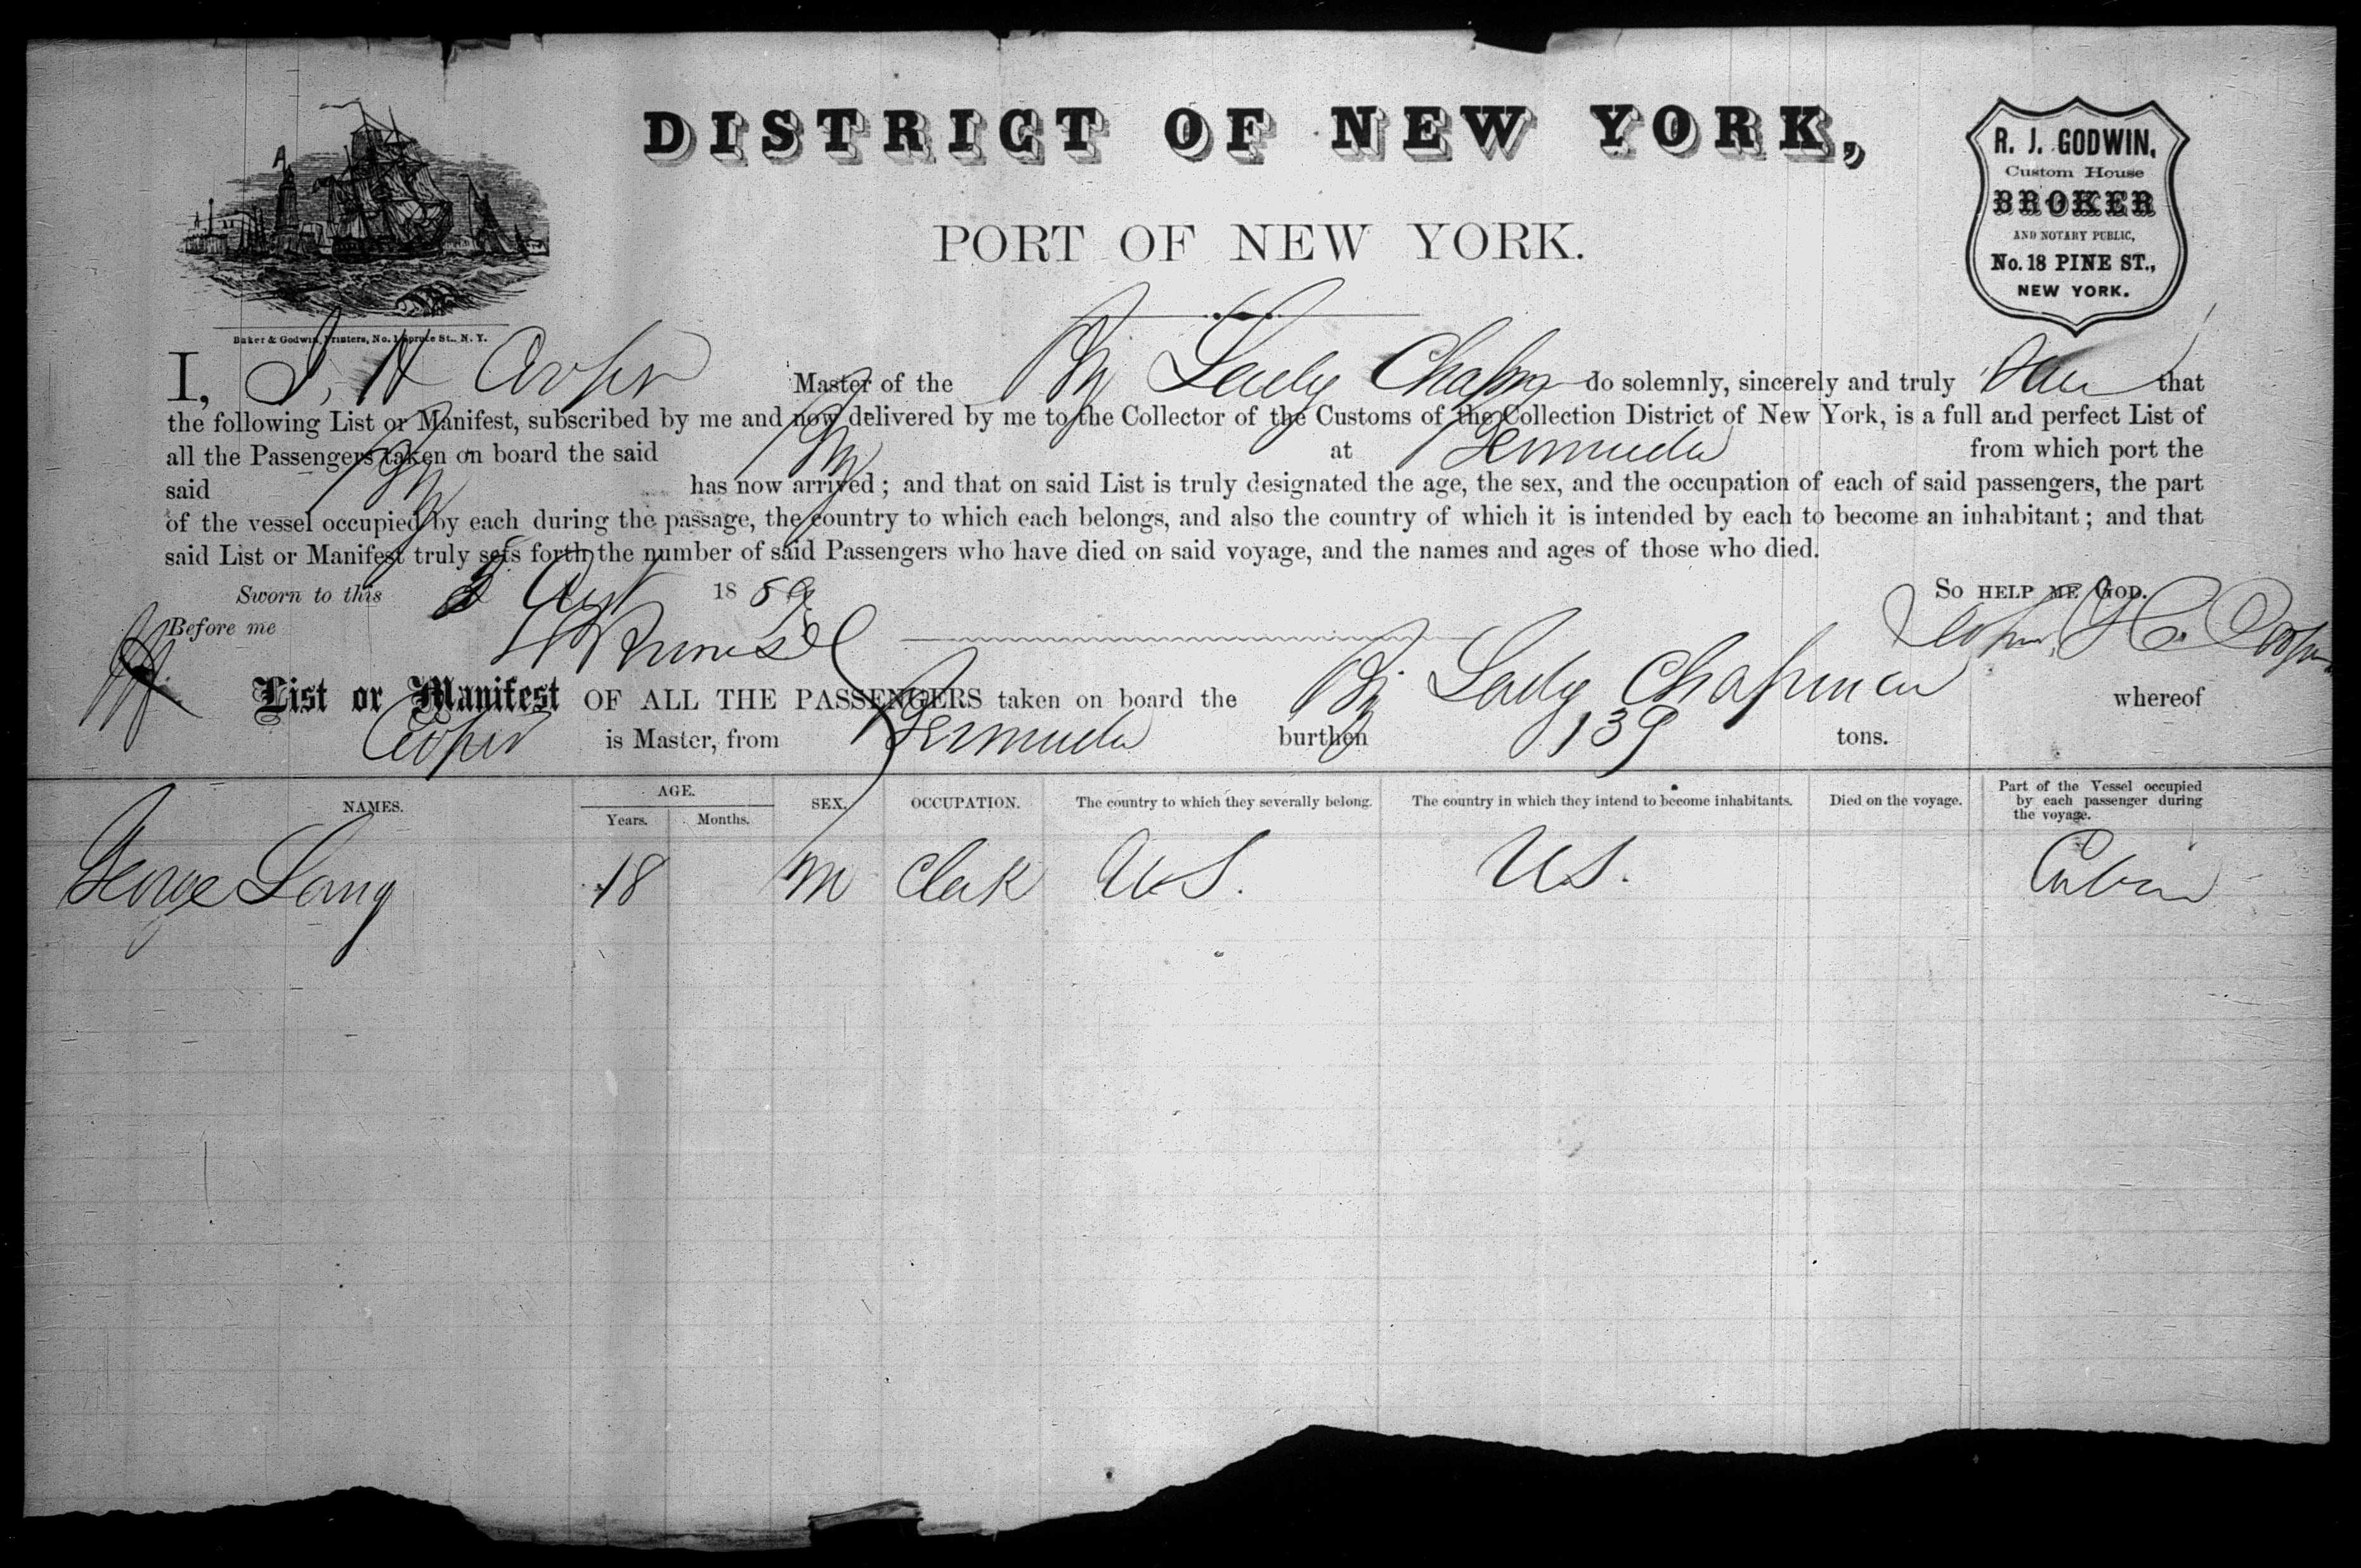 DISTRICT OF NEW YORK,
PORT OF NEW YORK.
R. J. GODWIN,
Custom House
BROKER
AND NOTARY PUBLIC,
No. 18 PINE ST.,
NEW YORK.
Baker & Godwin, Printers, No. 1 Spruce St., N. Y.
I, J. H Cooper Master of the Brig Lady Chapman do solemnly, sincerely and truly that
the following List or Manifest, subscribed by me and now delivered by me to the Collector of the Customs of the Collection District of New York, is a full and perfect List of
all the Passengers taken on board the said Brig at Bermuda from which port the
said Brig has now arrived; and that on said List is truly designated the age, the sex, and the occupation of each of said passengers, the part
of the vessel occupied by each during the passage, the country to which each belongs, and also the country of which it is intended by each to become an inhabitant; and that
said List or Manifest truly sets forth the number of said Passengers who have died on said voyage, and the names and ages of those who died.
Sworn to this 1859 SO HELP ME GOD.
Before me John H. Cooper
List or Manifest OF ALL THE PASSENGERS taken on board the Brig Lady Chapman whereof
Cooper is Master, from Bermuda burthen 139 tons.
NAMES. AGE. SEX. OCCUPATION. The country to which they severally belong. The country in which they intend to become inhabitants. Died on the voyage. Part of the Vessel occupied by each passenger during the voyage.
Years. Months.
George Lang 18 M Clerk U.S. U.S. Cabin